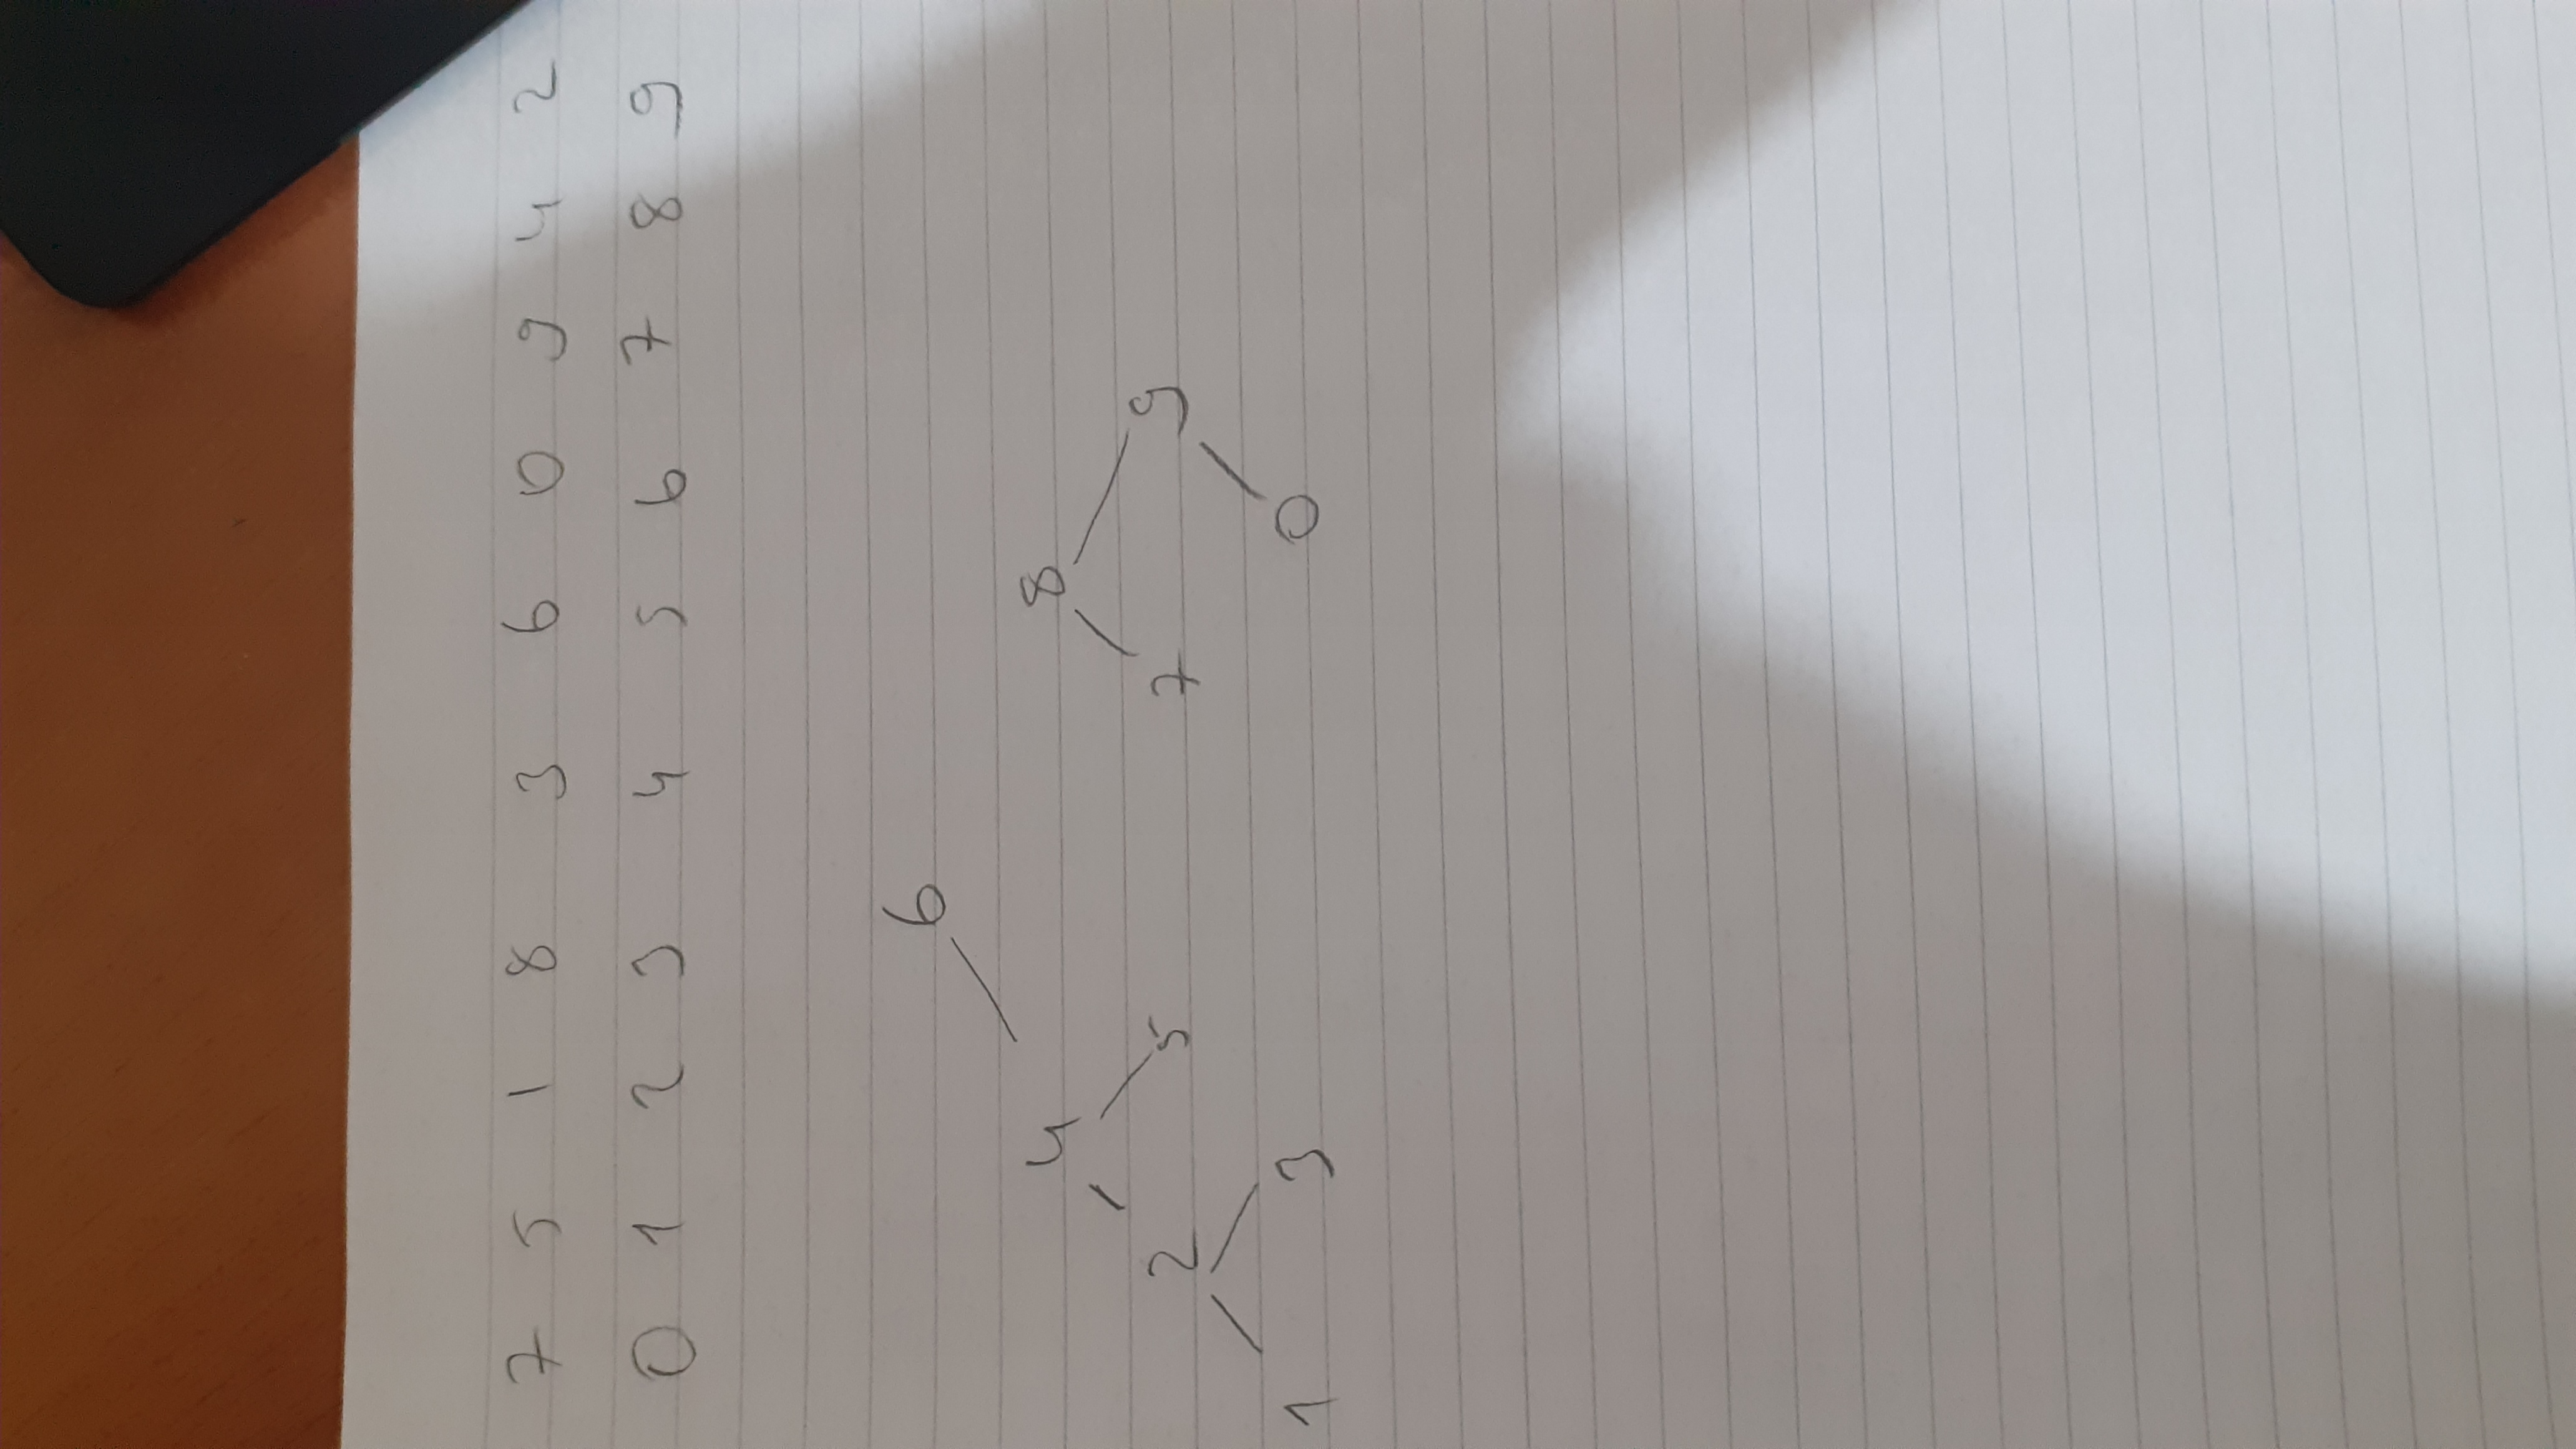 7 5 1 8 3 6 0 9 4 2
0 1 2 3 4 5 6 7 8 9
6
4 8
2 5 7 9
1 3 0